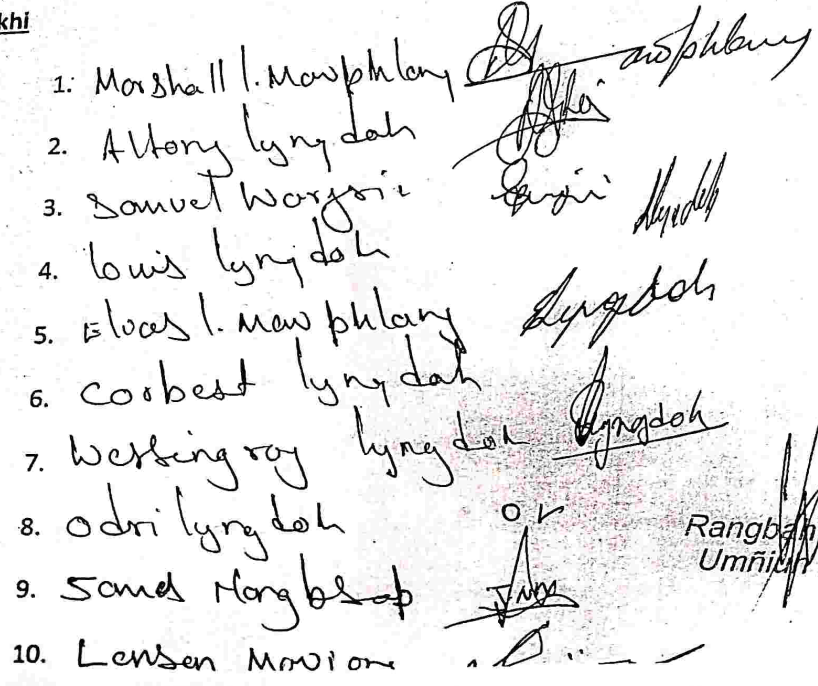 khi
1. Marshall l. Mawphlang awphlang
2. Altony lyngdoh
3. Samuel Warjri
4. louis lyngdoh
5. Elucas l. Mawphlang Lyngdoh
6. Corbest lyngdoh
7. Westingroy lyngdoh Lyngdoh
8. Odri lyngdoh or
Rangbah
Umñiuh
9. Hongbsab
10. Lensen